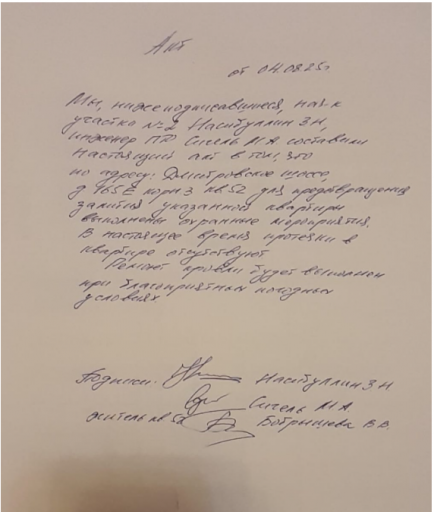 Акт
от 04.08.25г
Мы, нижеподписавшиеся, нач-к
участка №2 Насибуллин З.Н,
инженер ПТО Сигель М.А. составили
настоящий акт в том, что
по адресу: Дмитровское шоссе,
д 165Е корп 3 кв. 52 для предотвращения
залития указанной квартиры
выполнены охранные мероприятия.
В настоящее время протечки в
квартире отсутствуют.
Ремонт кровли будет выполнен
при благоприятных погодных
условиях
Подписи: Насибуллин З.Н
Сигель М.А.
житель кв 52 Бобрышева В.В.